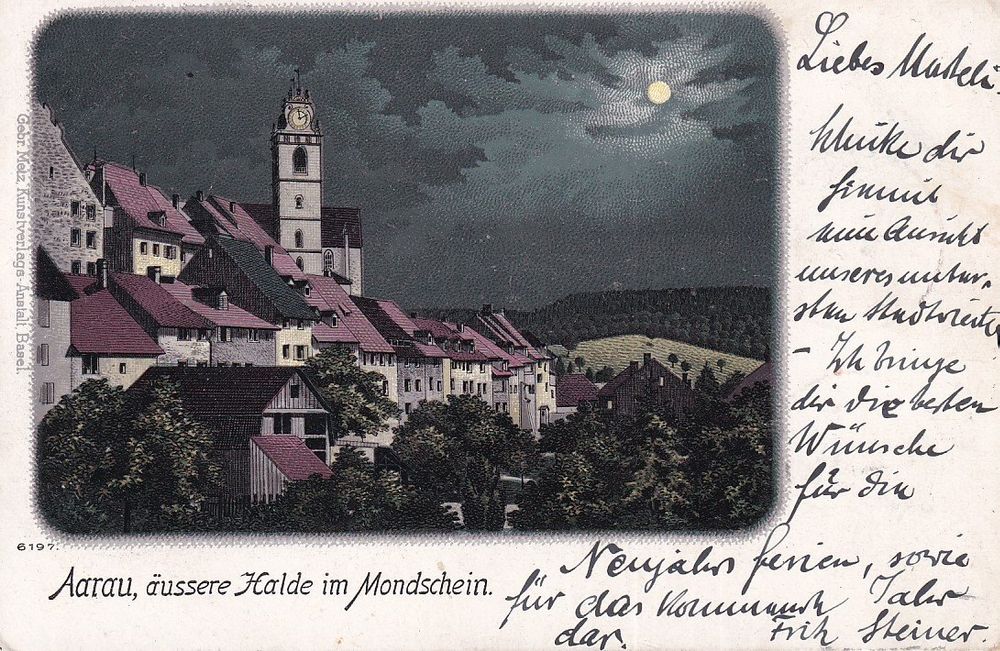 Gebr. Metz, Kunstverlags-Anstalt, Basel.
6197.
Aarau, äussere Halde im Mondschein.
Liebes
dir
unseres
— Ich bringe
dir die besten
Wünsche
für die
Neujahrsferien, sowie
für das kommende Jahr
dar. Fritz Steiner.